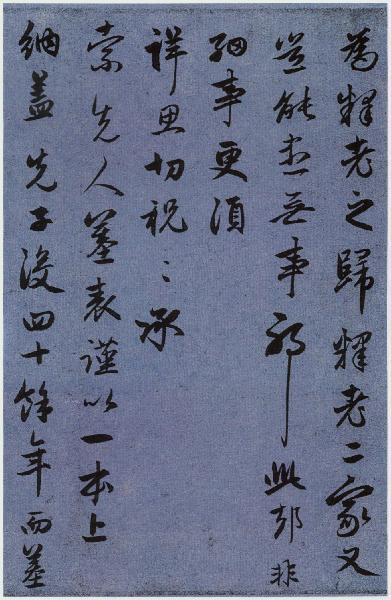 為釋老之歸釋老二家又
豈能患無事邪此却非
細事更須
詳思切祝〻承
索先人墓表謹以一本上
納蓋先子沒四十餘年而墓